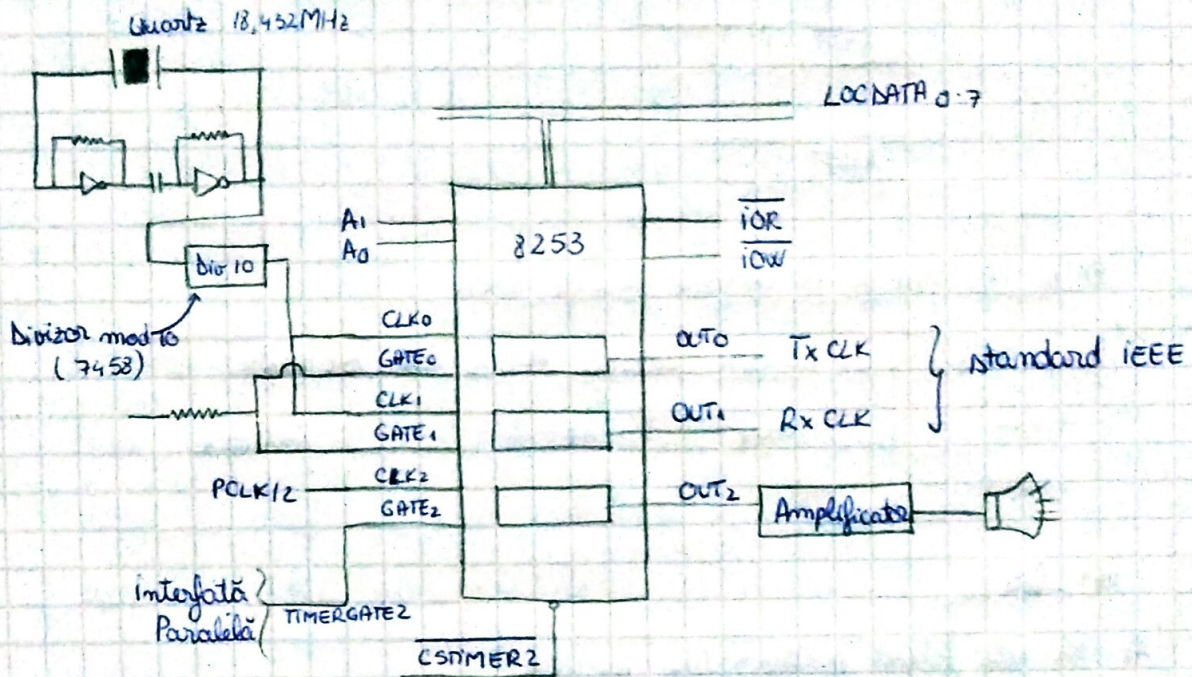 Quartz 18,432MHz
LOCDATA 0÷7
A1
A0
8253
IOR
IOW
Div 10
Divizor mod 10
(7458)
CLK0
GATE0
CLK1
GATE1
PCLK/2
CLK2
GATE2
OUT0
Tx CLK
OUT1
Rx CLK
standard IEEE
OUT2
Amplificator
interfată
Paralelă
TIMERGATE2
CSTIMER2